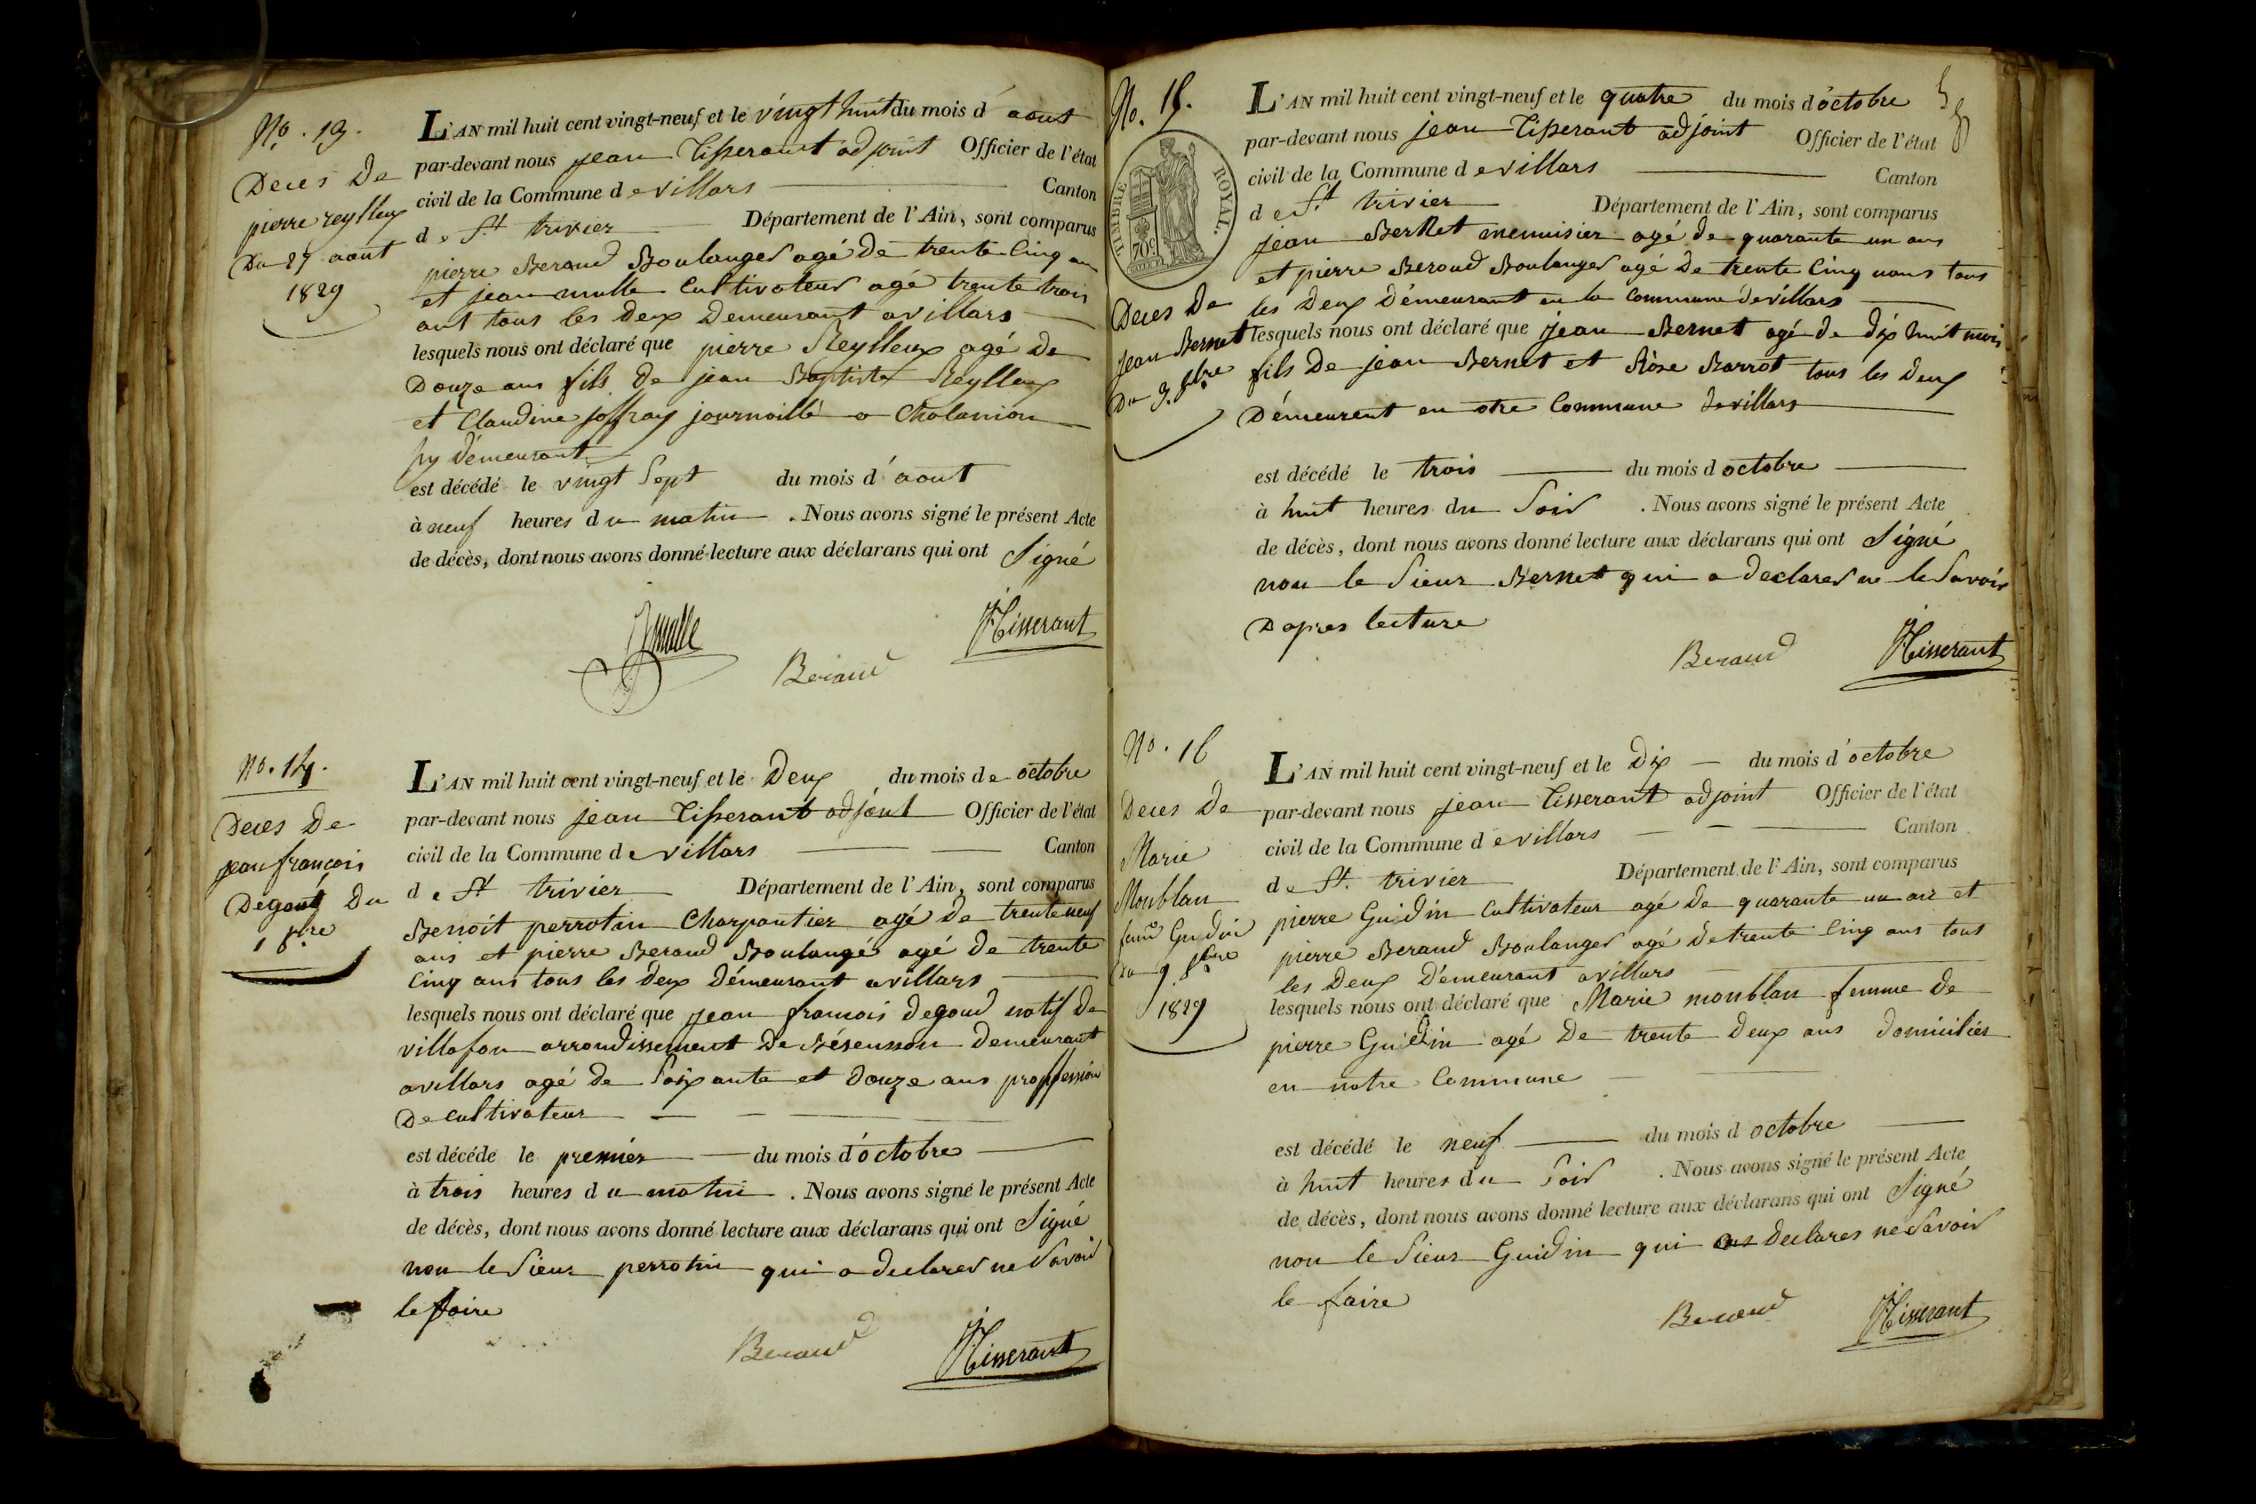 No. 13.
Deces De
pierre reylleux
Du 27 aout
1829
L'AN mil huit cent vingt-neuf et le vingt huit du mois d' aout
par-devant nous jean Tisserant adjoint Officier de l'état
civil de la Commune de villars Canton
de St trivier Département de l'Ain, sont comparus
pierre Beraud Boulanger agé de trente Cinq an
et jean mulle Cultivateur agé trente trois
ant tous les deux Demeurant avillars
lesquels nous ont déclaré que pierre Reylleux agé de
Douze ans fils de jean Baptiste Reylleux
et Claudine joffray journaillé a Chalamion
hy démeurant
est décédé le vingt Sept du mois d' aout
à neuf heures du matin . Nous avons signé le présent Acte
de décès, dont nous avons donné lecture aux déclarans qui ont Signé
Jmulle Beraud JTisserant
No. 14.
Deces De
jean françois
Degout Du
1 8bre
L'AN mil huit cent vingt-neuf et le Deux du mois de octobre
par-devant nous jean Tisserant adjoint Officier de l'état
civil de la Commune de villars Canton
de St trivier Département de l'Ain, sont comparus
Benoit perrotin Charpantier agé de trente neuf
ans et pierre Beraud Boulangé agé de trente
Cinq ans tous les deux Démeurant avillars
lesquels nous ont déclaré que jean francois degoud natif de
villafon arrondissement De Bésensson demeurant
avillars agé de Soixante et douze ans proffession
De cultivateur
est décéde le premier du mois d'octobre
à trois heures du matin . Nous avons signé le présent Acte
de décès, dont nous avons donné lecture aux déclarans qui ont Signé
non le Sieur perrotin qui a declarer ne Savoir
le faire
Beraud JTisserant
No. 15.
TIMBRE ROYAL.
70c
Deces De
jean Bernet
Du 3. 8bre
L'AN mil huit cent vingt-neuf et le quatre du mois d'octobre
par-devant nous jean Tisserant adjoint Officier de l'état
civil de la Commune de villars Canton
de St trivier Département de l'Ain, sont comparus
jean BerNet menuisier agé de quarante un ans
et pierre Beroud Boulanger agé de trente Cinq nans tous
les Deux Démeurant en la Commune devillars
lesquels nous ont déclaré que jean Bernet agé de dix huit mois
fils De jean Bernet et Rose Barrot tous les deux
Démeurent en otre Commune devillars
est décédé le trois du mois d octobre
à huit heures du Soir . Nous avons signé le présent Acte
de décès, dont nous avons donné lecture aux déclarans qui ont Signé
non le Sieur Bernet qui a declarer ne le Savoir
Dapres lecture
Beraud JTisserant
No. 16
Deces De
Marie
Moublan
fame Guidin
Du 9. 8bre
1829
L'AN mil huit cent vingt-neuf et le Dix du mois d'octobre
par-devant nous jean Tisserant adjoint Officier de l'état
civil de la Commune de villars Canton
de St. trivier Département de l'Ain, sont comparus
pierre Guidin Cultivateur agé de quarante un an et
pierre Beraud Boulanger agé de trente Cinq ans tous
les Deux Démeurant avillars
lesquels nous ont déclaré que Marie moublan femme de
pierre Guidin agé De trente deux ans domicilier
en notre Commune
est décédé le neuf du mois d octobre
à huit heures du Soir . Nous avons signé le présent Acte
de décès, dont nous avons donné lecture aux déclarans qui ont Signé
non le Sieur Guidin qui declarer ne Savoir
le faire
Beraud JTisserant